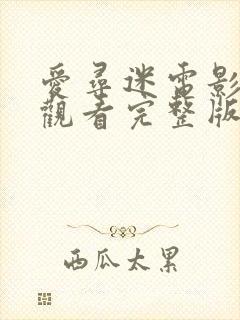 愛尋迷電影
觀看完整版
西瓜太累